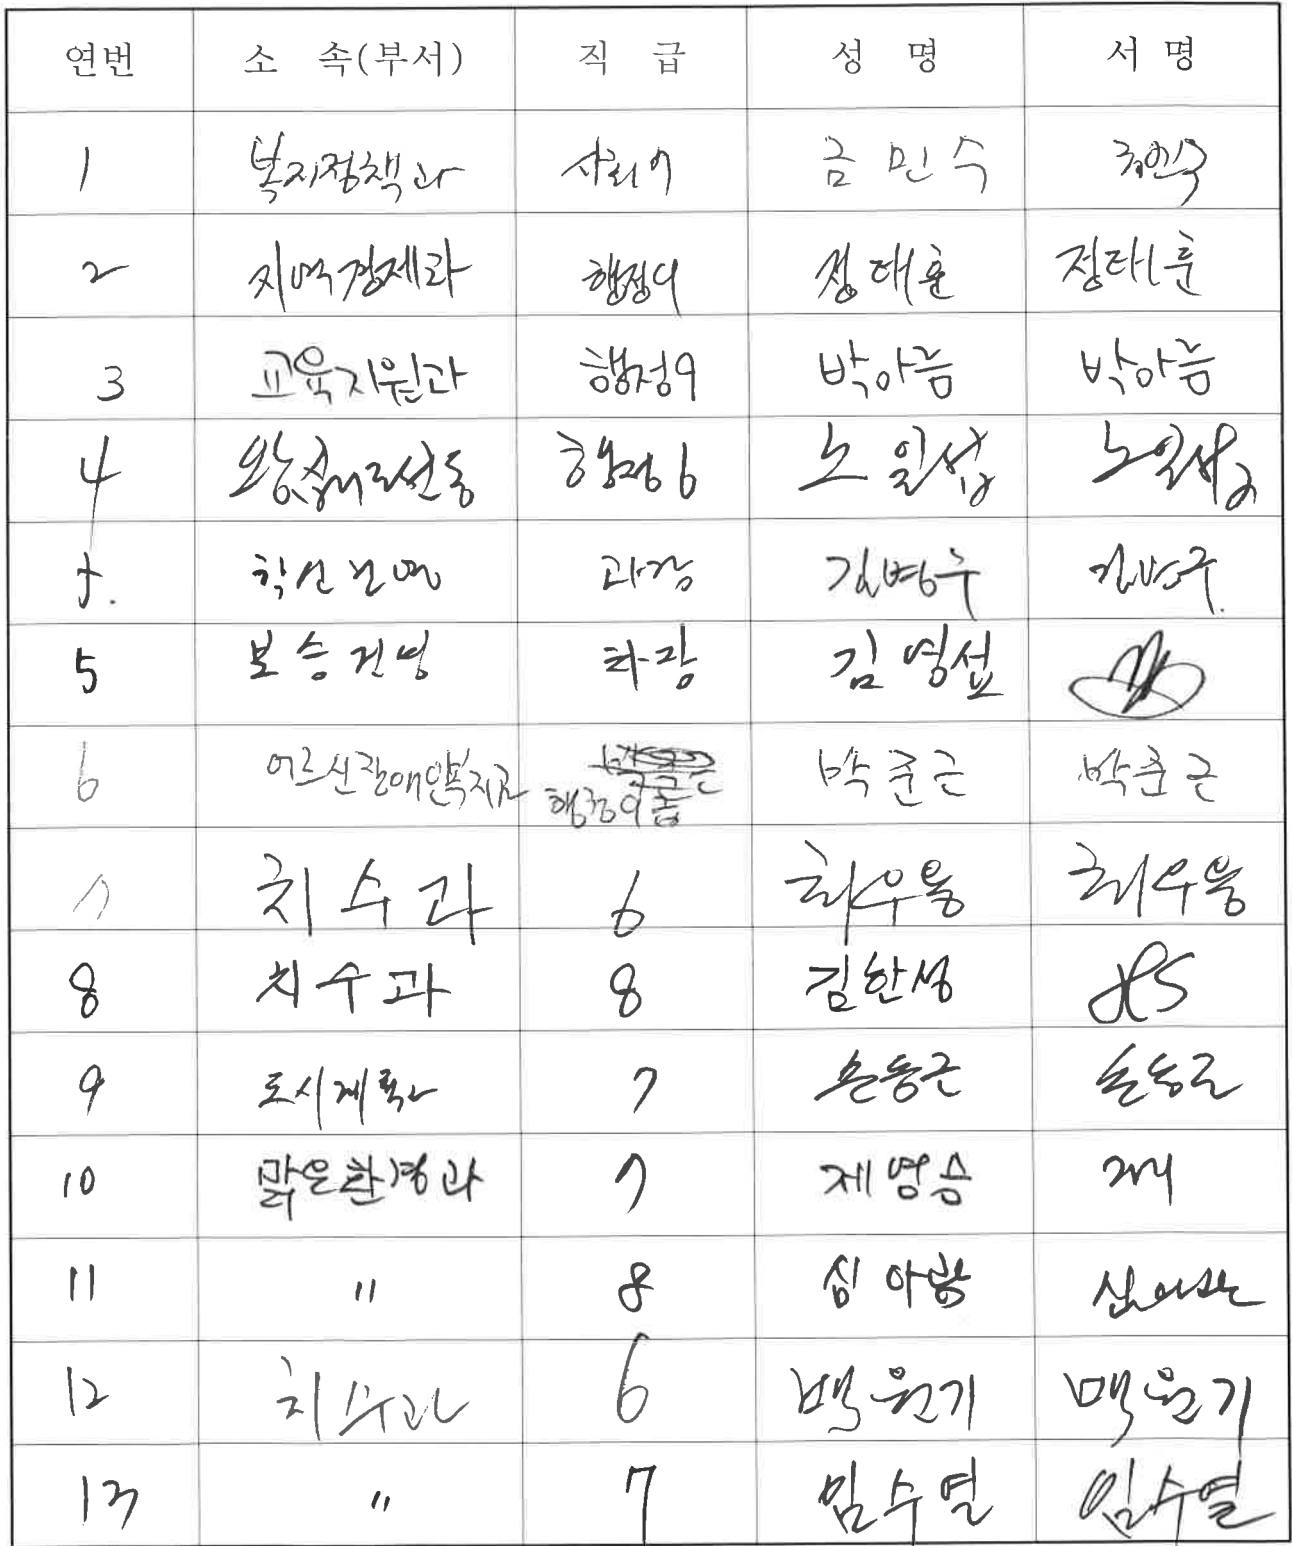 연번 소 속(부서) 직 급 성 명 서 명
1 복지정책과 사회9 금민수 금민수
2 지역경제과 행정9 정태훈 정태훈
3 교육지원과 행정9 박아름 박아름
4 왕십리도선동 행정6 노일섭 노일섭
과장 김병수
5 보승건영 차장 김영섭
6 어르신장애인복지과 행정9급 박준근 박준근
7 치수과 6 최우용 최우용
8 치수과 8 김한성
9 도시계획과 7 손동근 손동근
10 맑은환경과 7 제영승 제
11 〃 8 심아람
12 치수과 6 맹원기 맹원기
13 〃 7 임수열 임수열